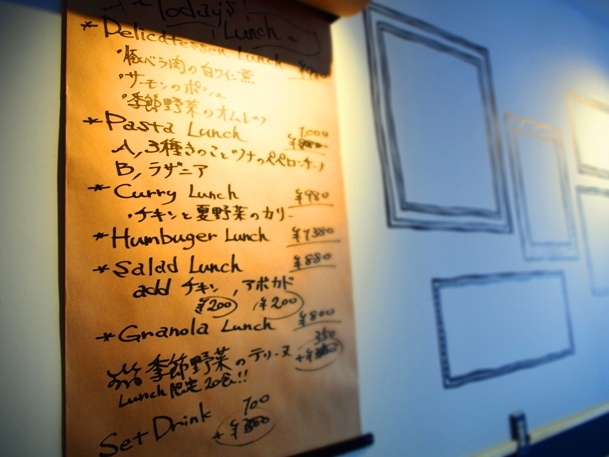 ~Today's
* Delicatessen Lunch ~
・豚バラ肉の白ワイン煮
・サーモンのポワレ
・季節野菜のオムレツ
* Pasta Lunch 1000
A, 3種きのことツナのペペロンチーノ
B, ラザニア
* Curry Lunch ¥980
・チキンと夏野菜のカリー
* Humbuger Lunch ¥1380
* Salad Lunch ¥880
add チキン, アボカド
¥200 ¥200
* Granola Lunch ¥800
季節野菜のテリーヌ 350
Lunch 限定20名!!
Set Drink 100